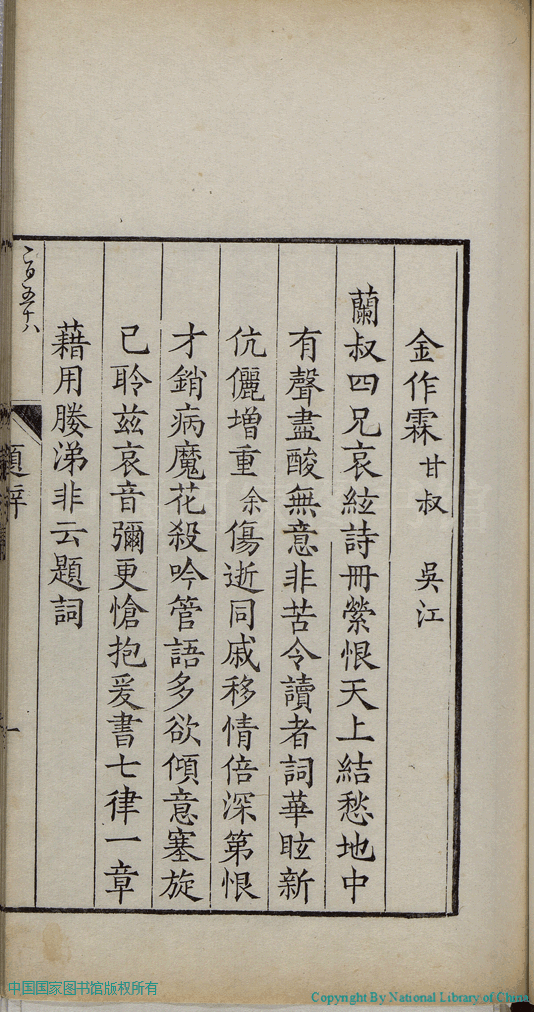 金作霖 甘叔 吳江
蘭叔四兄哀絃詩冊縈恨天上結愁地中
有聲盡酸無意非苦令讀者詞華眩新
伉儷增重余傷逝同戚移情倍深第恨
才銷病魔花殺吟管語多欲傾意塞旋
已聆茲哀音彌更愴抱爰書七律一章
藉用媵涕非云題詞
二百五十八
題辞
一
中国国家图书馆版权所有
Copyright By National Library of China